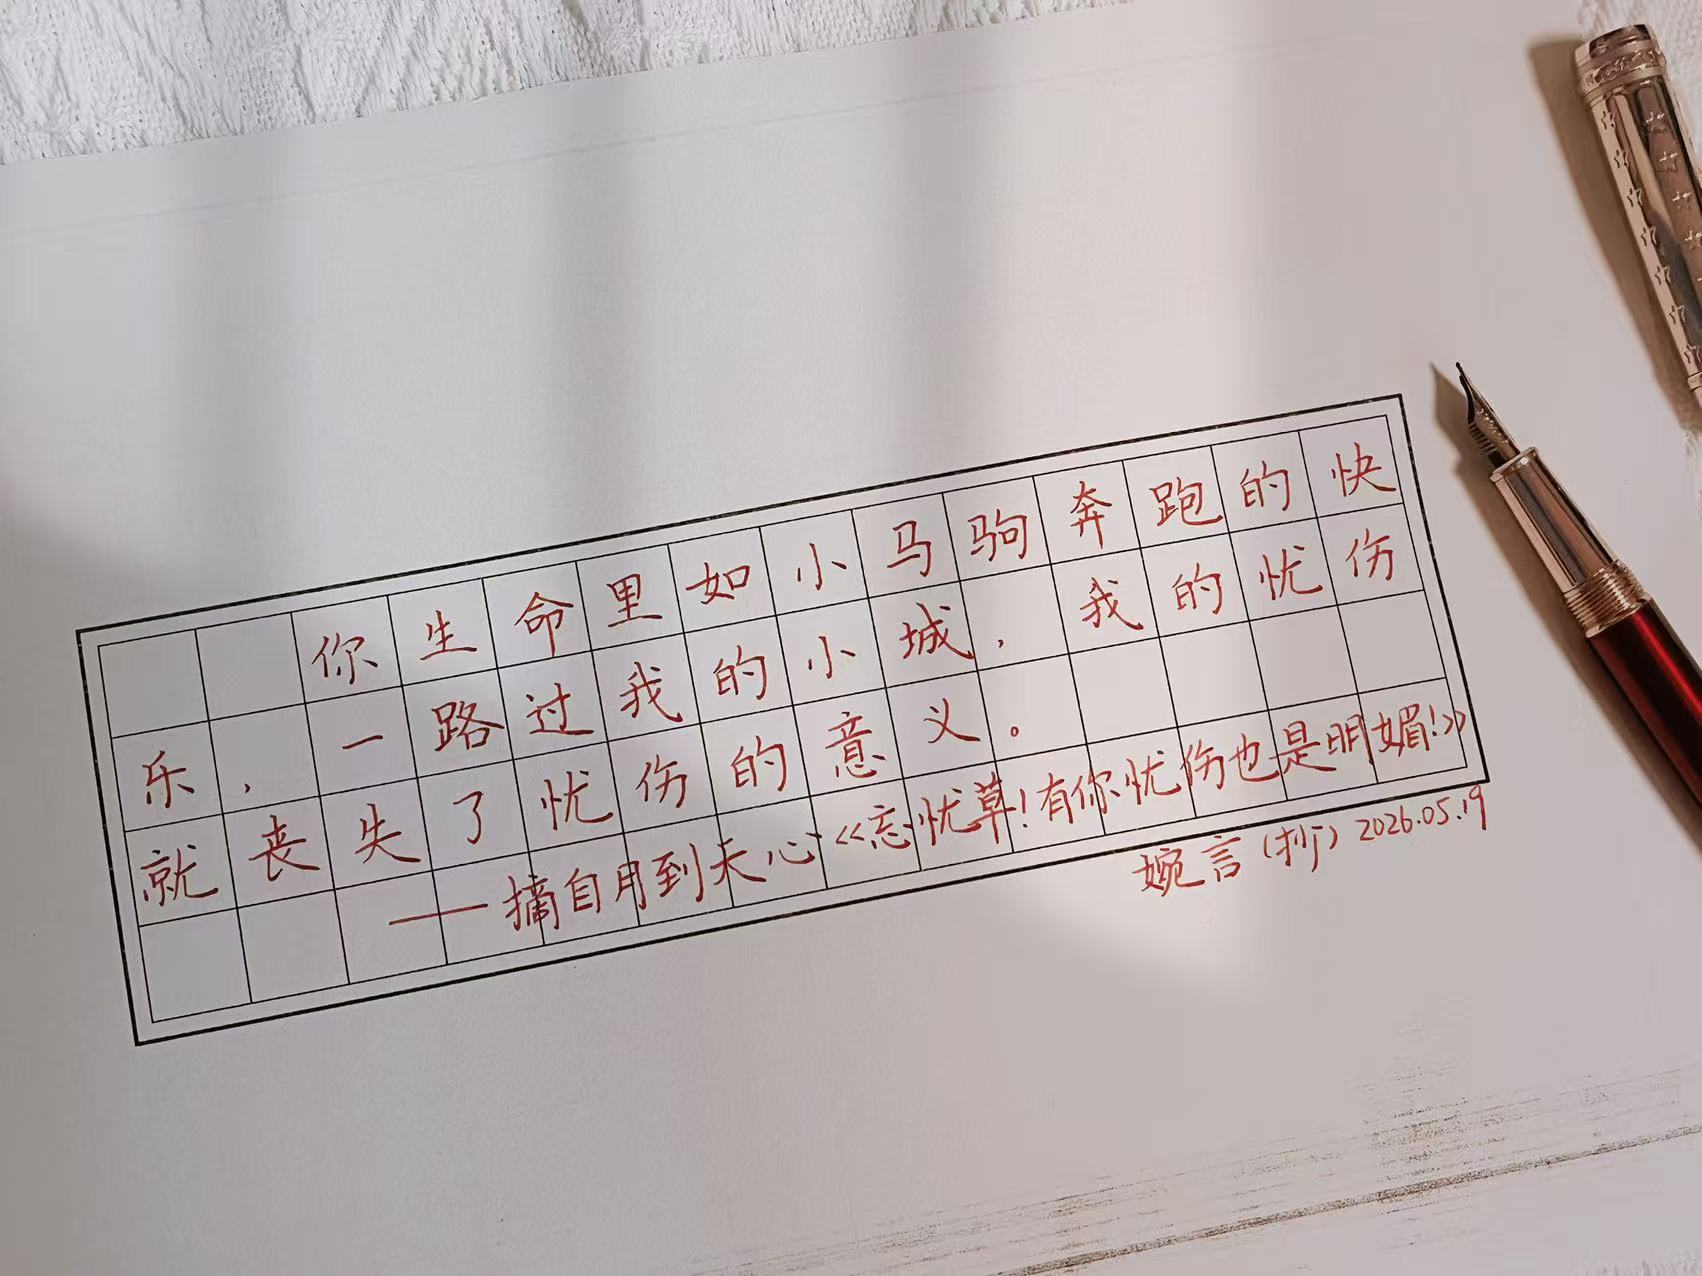 你生命里如小马驹奔跑的快
乐,一路过我的小城,我的忧伤
就丧失了忧伤的意义。
——摘自月到天心《忘忧草!有你忧伤也是明媚!》
婉言(抄)2026.05.19